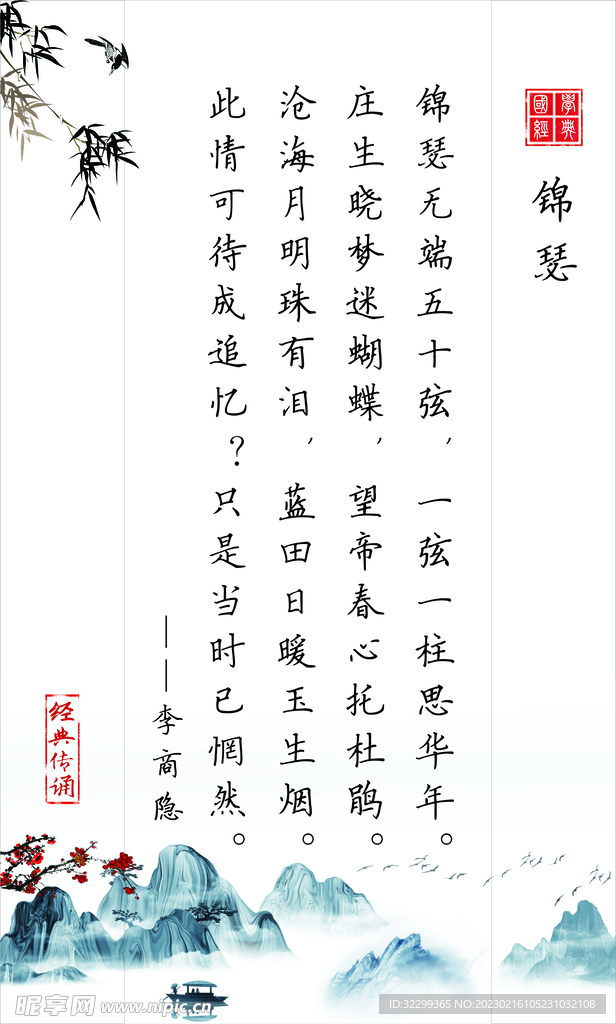 國學經典
锦瑟
锦瑟无端五十弦，一弦一柱思华年。
庄生晓梦迷蝴蝶，望帝春心托杜鹃。
沧海月明珠有泪，蓝田日暖玉生烟。
此情可待成追忆？只是当时已惘然。
——李商隐
经典传诵
昵享网 www.nipic.cn
ID:32299365 NO:20230216105231032108